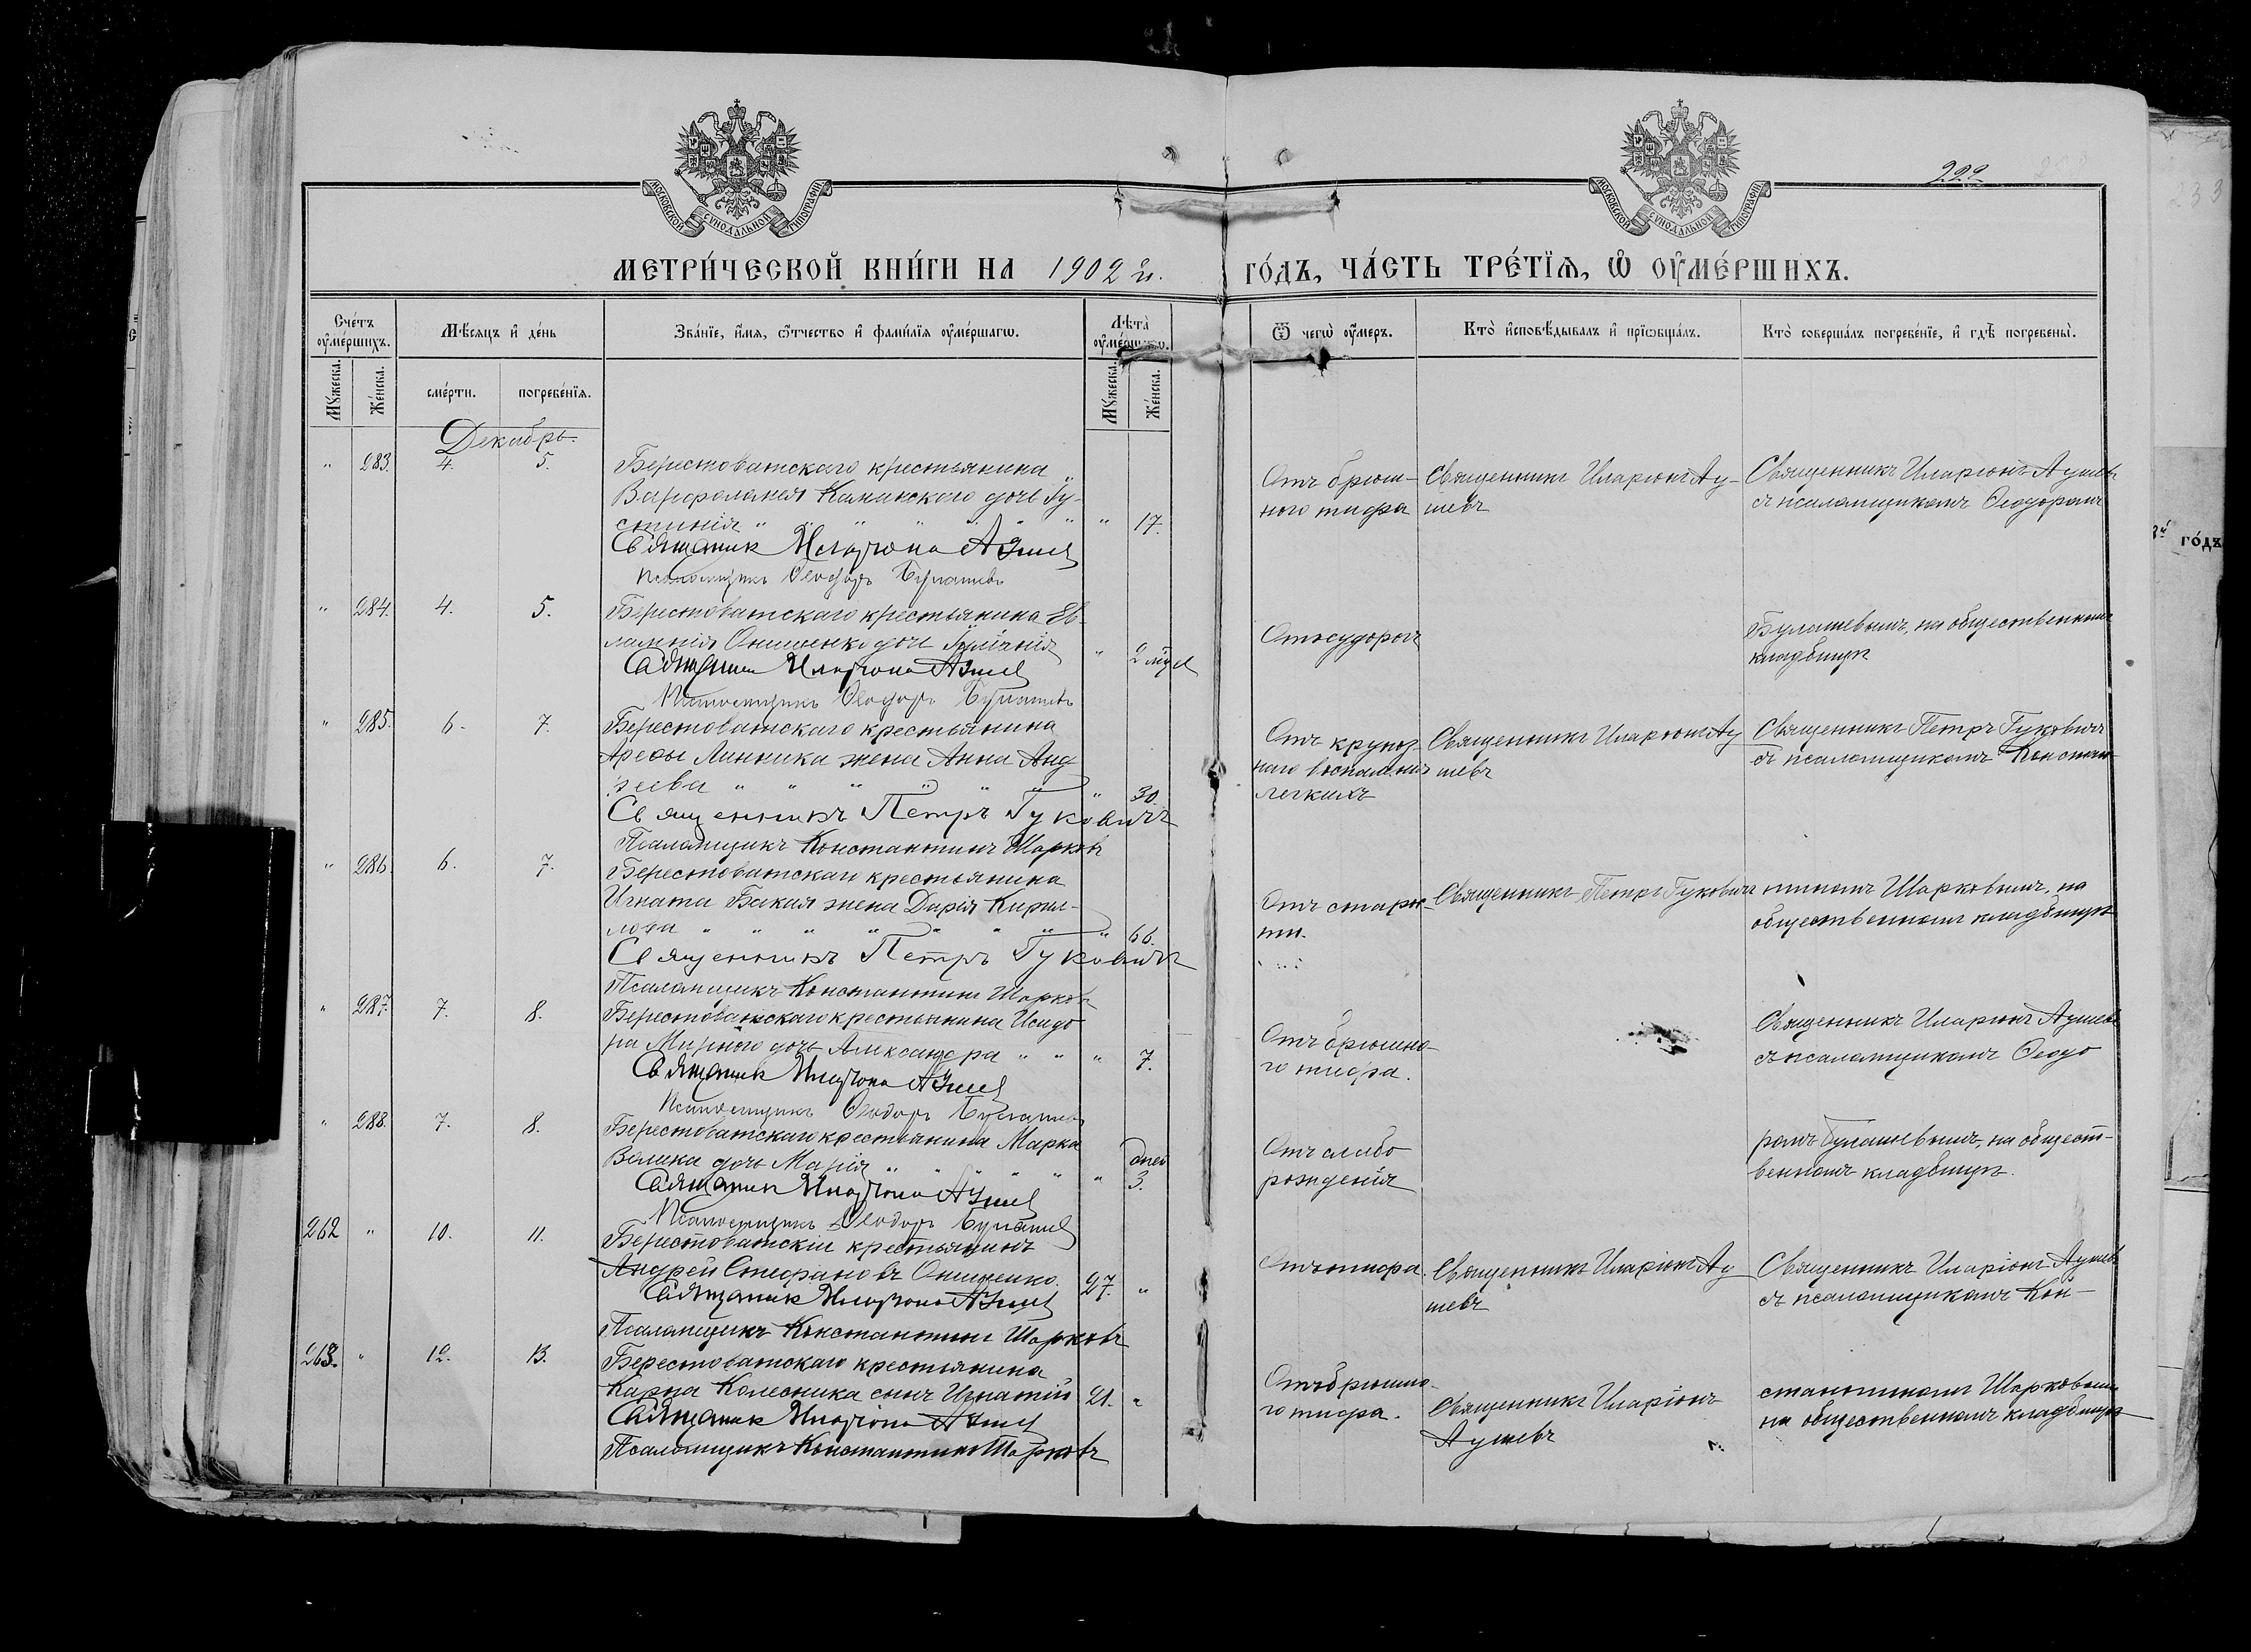 222
МОСКОВСКОЙ СУНОДАЛЬНОЙ ТИПОГРАФІИ
МОСКОВСКОЙ СУНОДАЛЬНОЙ ТИПОГРАФІИ
МЕТРИ́ЧЕСКОЙ КНИ́ГИ НА 1902 й. ГО́ДЪ, ЧА́СТЬ ТРЕ́ТІѦ, Ѡ ОУ҆МЕ́РШИХЪ.
Сче́тъ оу҆ме́ршихъ.
Мѣ́сѧцъ и҆ де́нь
Зва́нїе, и҆́мѧ, ѻ҆́тчество и҆ фами́лїѧ оу҆ме́ршагѡ.
Лѣта̀ оу҆ме́ршагѡ.
Ѿ чегѡ̀ оу҆́меръ.
Кто̀ и҆сповѣ́дывалъ и҆ прїѡбща́лъ.
Кто̀ соверша́лъ погребе́нїе, и҆ гдѣ̀ погребены̀.
Мꙋ́жеска. Же́нска.
сме́рти. погребе́нїѧ.
Мꙋ́жеска. Же́нска.
Декабрь.
" 283. 4. 5. Берестоватскаго крестьянина
Варфоломея Каминского дочь Іу-
стинія " " " " " " " 17.
Священник Иларіонъ Аушев
Псаломщикъ Ѳеодоръ Булашевъ
Отъ брюш-
ного тифа
Священникъ Иларіонъ Ау-
шевъ
Священникъ Иларіонъ Аушевъ
съ псаломщикомъ Ѳеодоромъ
" 284. 4. 5. Берестоватскаго крестьянина Ев-
лампія Онищенко дочь Іуліанія
" 2 мѣс
Священник Иларіонъ Аушев
Псаломщикъ Ѳеодоръ Булашевъ
Отъ судорогъ
Булашевымъ, на общественномъ
кладбищѣ
" 285. 6. 7. Берестоватскаго крестьянина
Арефы Линника жена Анна Анд
реева " " " " " " " 30.
Священникъ Петръ Гуковичъ
Псаломщикъ Константинъ Шарковъ
Отъ крупоз-
наго воспаленія
легкихъ
Священникъ Иларіонъ Ау
шевъ
Священникъ Петръ Гуковичъ
съ псаломщикомъ Констан-
" 286. 6. 7. Берестоватскаго крестьянина
Игната Бакая жена Дарія Кирил-
лова " " " " " " " 66.
Священникъ Петръ Гуковичъ
Псаломщикъ Константинъ Шарковъ
Отъ старос-
ти.
Священникъ Петръ Гуковичъ
тиномъ Шарковымъ, на
общественномъ кладбищѣ
" 287. 7. 8. Берестоватскаго крестьянина Исидо
ра Мирного дочь Александра " " " 7.
Священник Иларіонъ Аушев
Псаломщикъ Ѳеодоръ Булашевъ
Отъ брюшно-
го тифа.
Священникъ Иларіонъ Аушевъ
съ псаломщикомъ Ѳеодо
" 288. 7. 8. Берестоватскаго крестьянина Марка
Велика дочь Марія " " " " " дней 3.
Священник Иларіонъ Аушев
Псаломщикъ Ѳеодоръ Булашев
Отъ слабо
рожденія
ромъ Булашевымъ, на общест-
венномъ кладбищѣ.
262 " 10. 11. Берестоватскій крестьянинъ
Андрей Стефановъ Онищенко. 27. "
Священник Иларіонъ Аушев
Псаломщикъ Константинъ Шарковъ
Отъ тифа.
Священникъ Иларіонъ Ау
шевъ
Священникъ Иларіонъ Аушевъ
съ псаломщикомъ Кон-
263. " 12. 13. Берестоватскаго крестьянина
Карпа Колесника сынъ Игнатій 21. "
Священник Иларіонъ Аушев
Псаломщикъ Константинъ Шарковъ
Отъ брюшно-
го тифа.
Священникъ Иларіонъ
Аушевъ
стантиномъ Шарковымъ
на общественномъ кладбищѣ
233
го́дъ